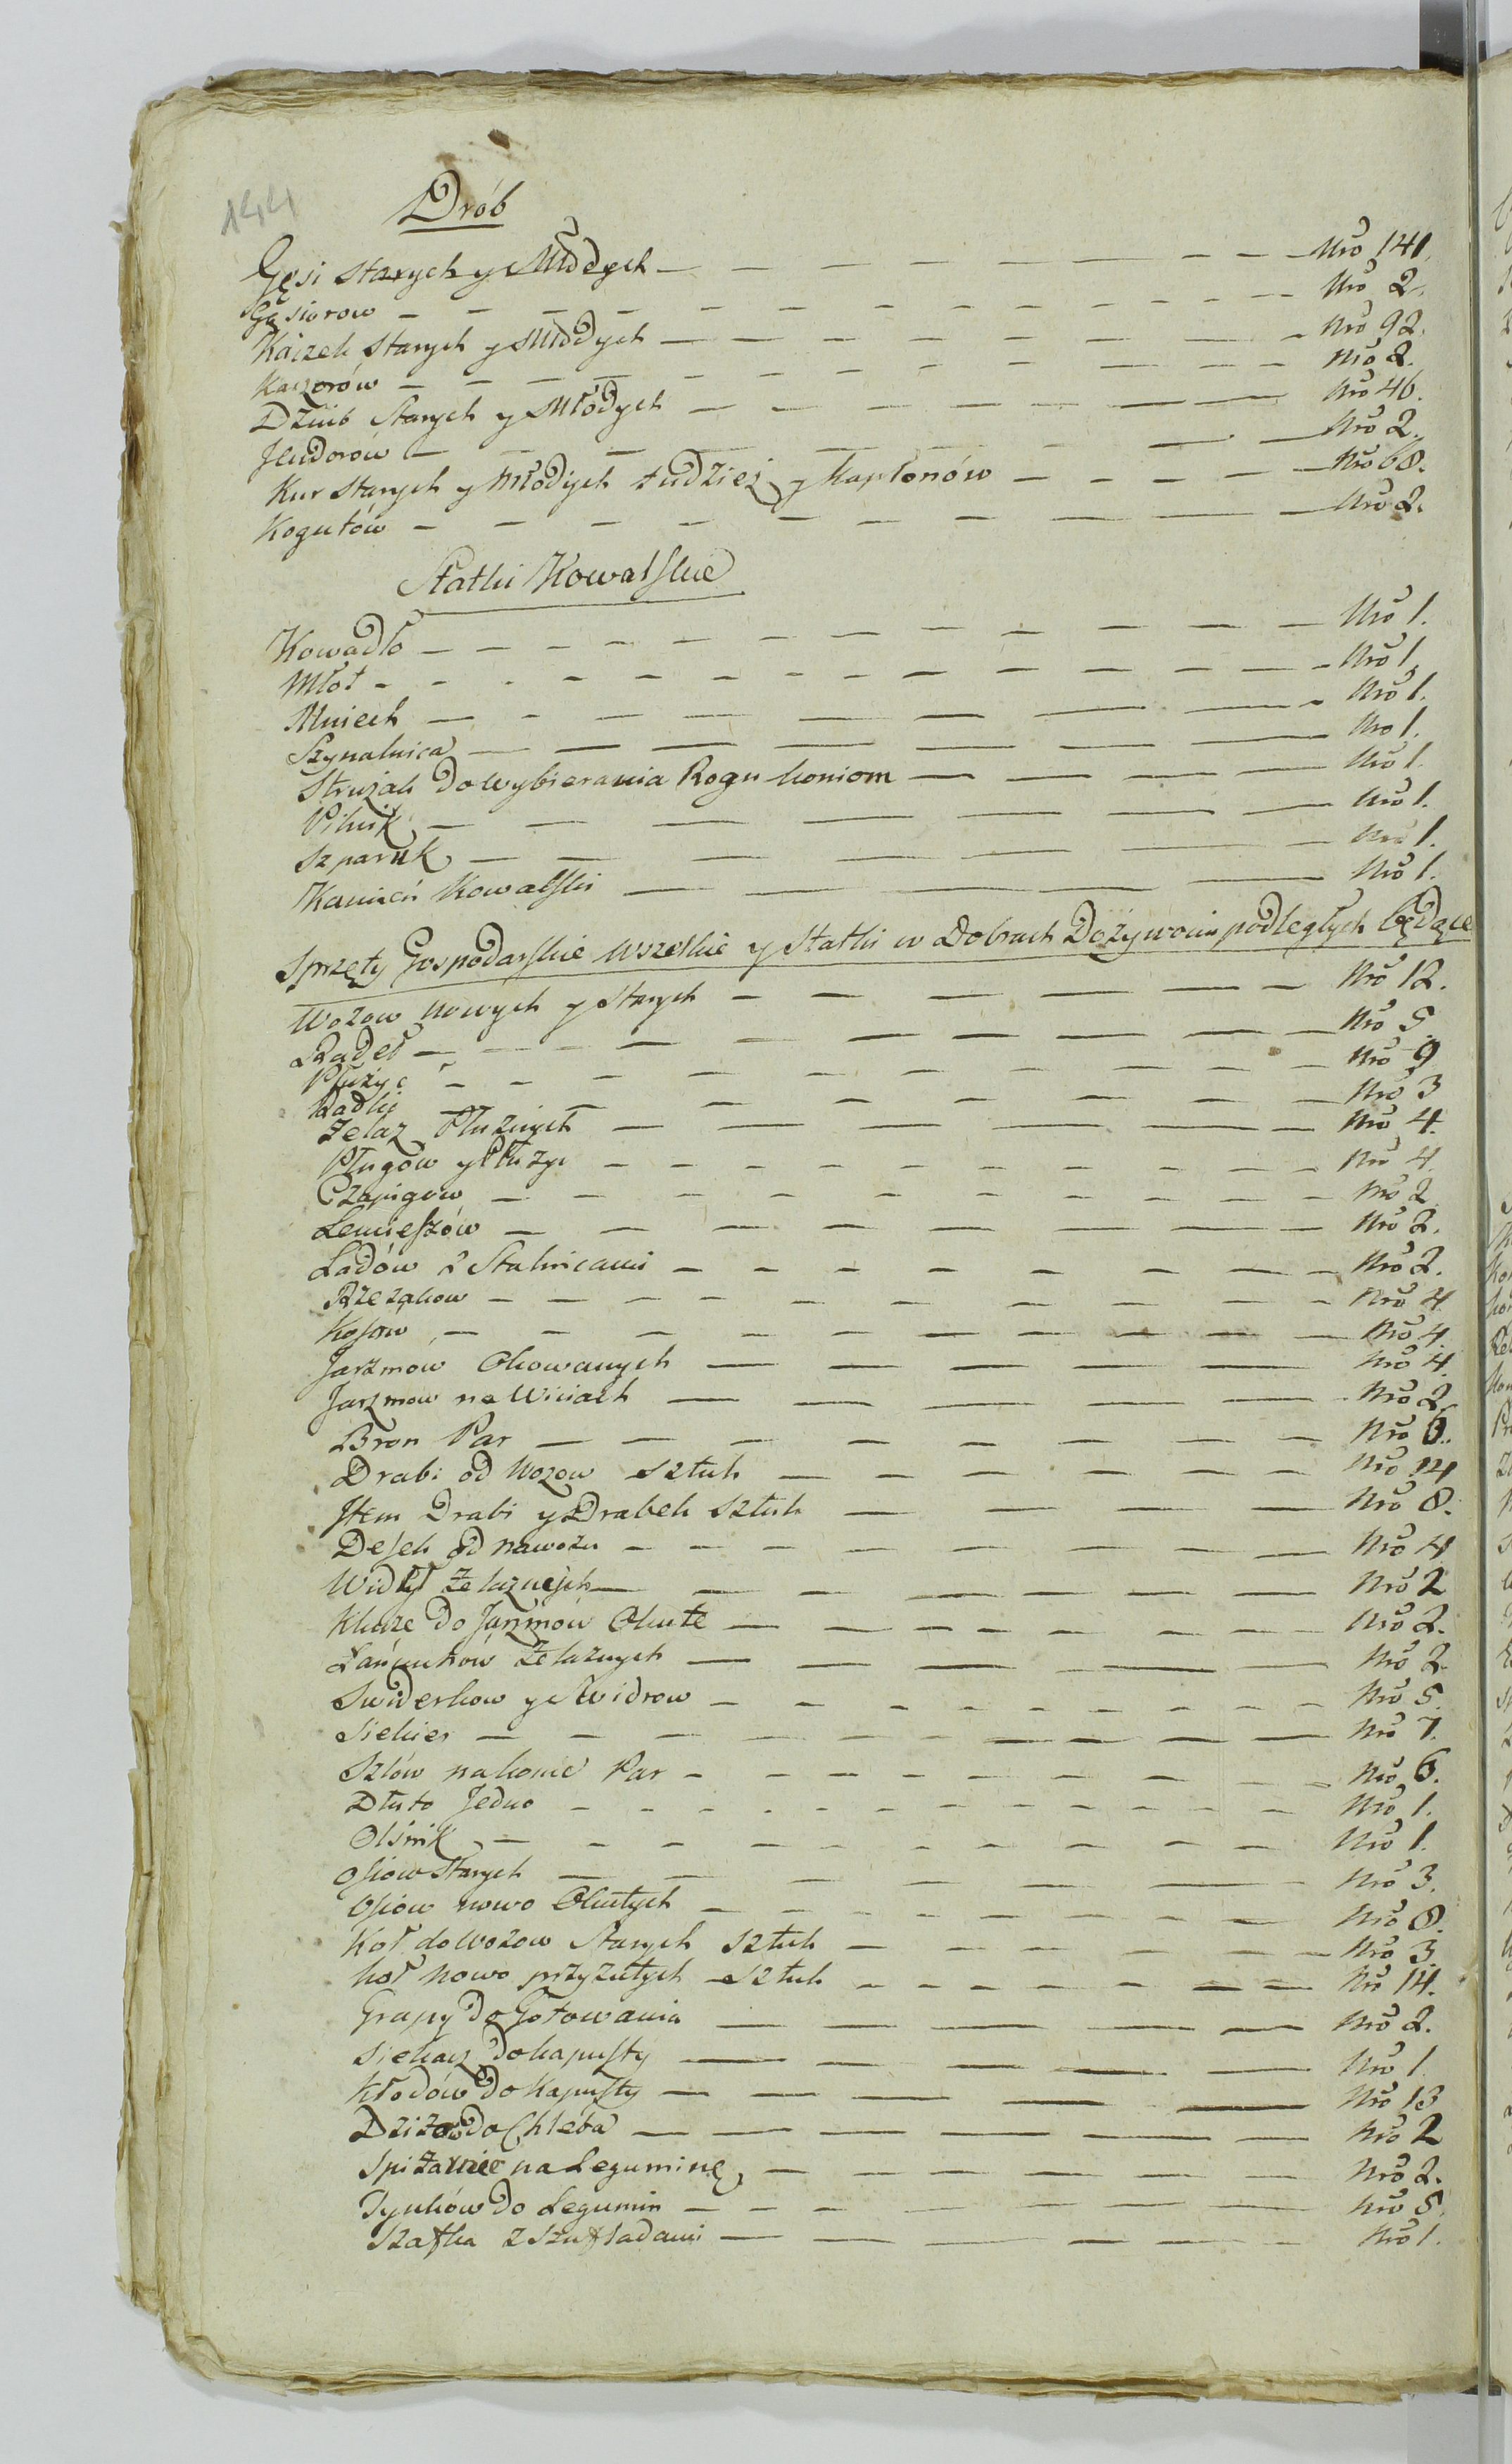 144
Drób
Gęsi starych y Młodych — Nro 141.
Gąsiorow — Nro 2.
Kaczek Starych y Młodych — Nro 92.
Kaczorów — Nro 2.
Dziub Starych y Młodych — Nro 46.
Jendorów — Nro 2.
Kur starych y Młodych tudzież y Kapłonów — Nro 68.
Kogutów — Nro 2.
Statki Kowalskie
Kowadło — Nro 1.
Młot — Nro 1.
Miech — Nro 1.
Szynalnica — Nro 1.
Strużak do wybierania Rogu koniom — Nro 1.
Pilnik — Nro 1.
Szparuk — Nro 1.
Kamień Kowalski — Nro 1.
Sprzęty Gospodarskie wszelkie y Statki w Dobrach Dożywociu podległych będące
Wozow nowych y starych — Nro 12.
Radeł — Nro 5.
Płużyc — Nro 9
Radlic — Nro 3
Żelaz Płużnych — Nro 4.
Pługów y Płużyc — Nro 4.
Czapigow — Nro 2
Lemieszów — Nro 2.
Ladów z Stalnicami — Nro 2.
Rzezakow — Nro 4
Kosow — Nro 4.
Jarzmow Okowanych — Nro 4.
Jarzmow na Wiciach — Nro 2
Bron Par — Nro 6.
Drabi od Wozow sztuk — Nro 14
Item Drabi y Drabek sztuk — Nro 8.
Desek od nawozu — Nro 4
Wideł Żelaznych — Nro 2
Klucze do Jarzmów Okute — Nro 2.
Łańcuchów Żelaznych — Nro 2
Swiderkow y Swidrow — Nro 5.
Siekier — Nro 7.
Szlów na konie Par — Nro 6.
Dłuto Jedno — Nro 1.
Ośnik — Nro 1.
Osiow Starych — Nro 3.
Osiow nowo Okutych — Nro 8.
Koł do Wozow Starych sztuk — Nro 3.
Koł nowo przyzutych sztuk — Nro 14.
Grapy do Gotowania — Nro 2.
Siekacz do kapusty — Nro 1
Kłodów do Kapusty — Nro 13
Dzizow do Chleba — Nro 2
Spiżarnie na Leguminę — Nro 2.
Tynków do Legumin — Nro 5.
Szafka z Szufladami — Nro 1.